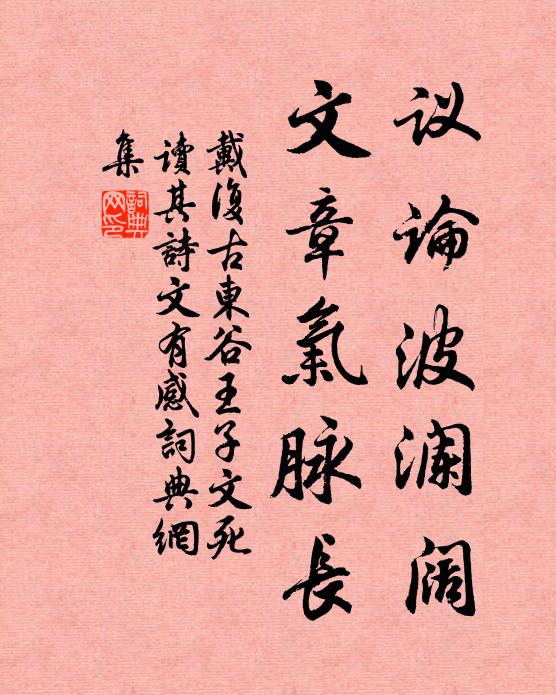 议论波澜阔
文章氣脉長
戴復古東谷王子文死
讀其詩文有感詞典網
集
詞典网印